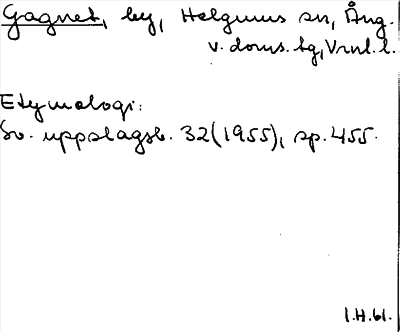 Gagnet, by, Helgums sn, Ång.
v. doms. tg, Vrnl. l.
Etymologi:
Sv. uppslagsb. 32 (1955), sp. 455.
I.H. 61.